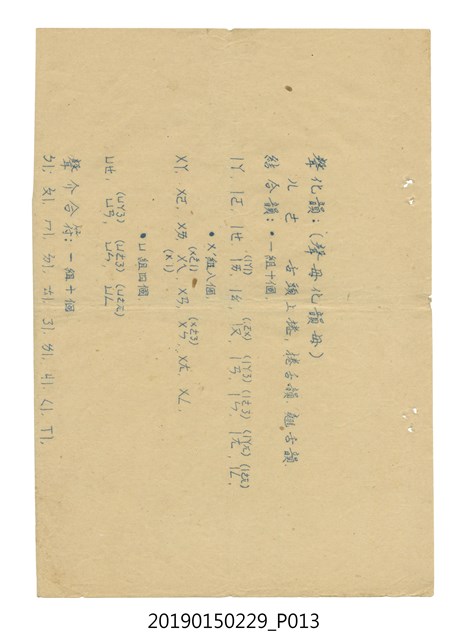 聲化韻:(聲母化韻母)
舌頭上捲, 捲舌韻. 翹舌韻.
結合韻:•一組十個.
ㄧㄚ, ㄧㄛ, ㄧㄝ, ㄧㄞ, ㄧㄠ, ㄧㄡ, ㄧㄢ, ㄧㄣ, ㄧㄤ, ㄧㄥ.
•ㄨ組八個.
ㄨㄚ, ㄨㄛ, ㄨㄞ, ㄨㄟ, ㄨㄢ, ㄨㄣ, ㄨㄤ, ㄨㄥ.
•ㄩ組四個
ㄩㄝ, ㄩㄢ, ㄩㄣ, ㄩㄥ
聲介合符:一組十個
ㄅㄧ, ㄆㄧ, ㄇㄧ, ㄉㄧ, ㄊㄧ, ㄋㄧ, ㄌㄧ, ㄐㄧ, ㄑㄧ, ㄒㄧ,
20190150229_P013